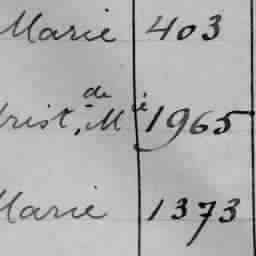 Marie 403
rist. de Mie 1965
Marie 1373